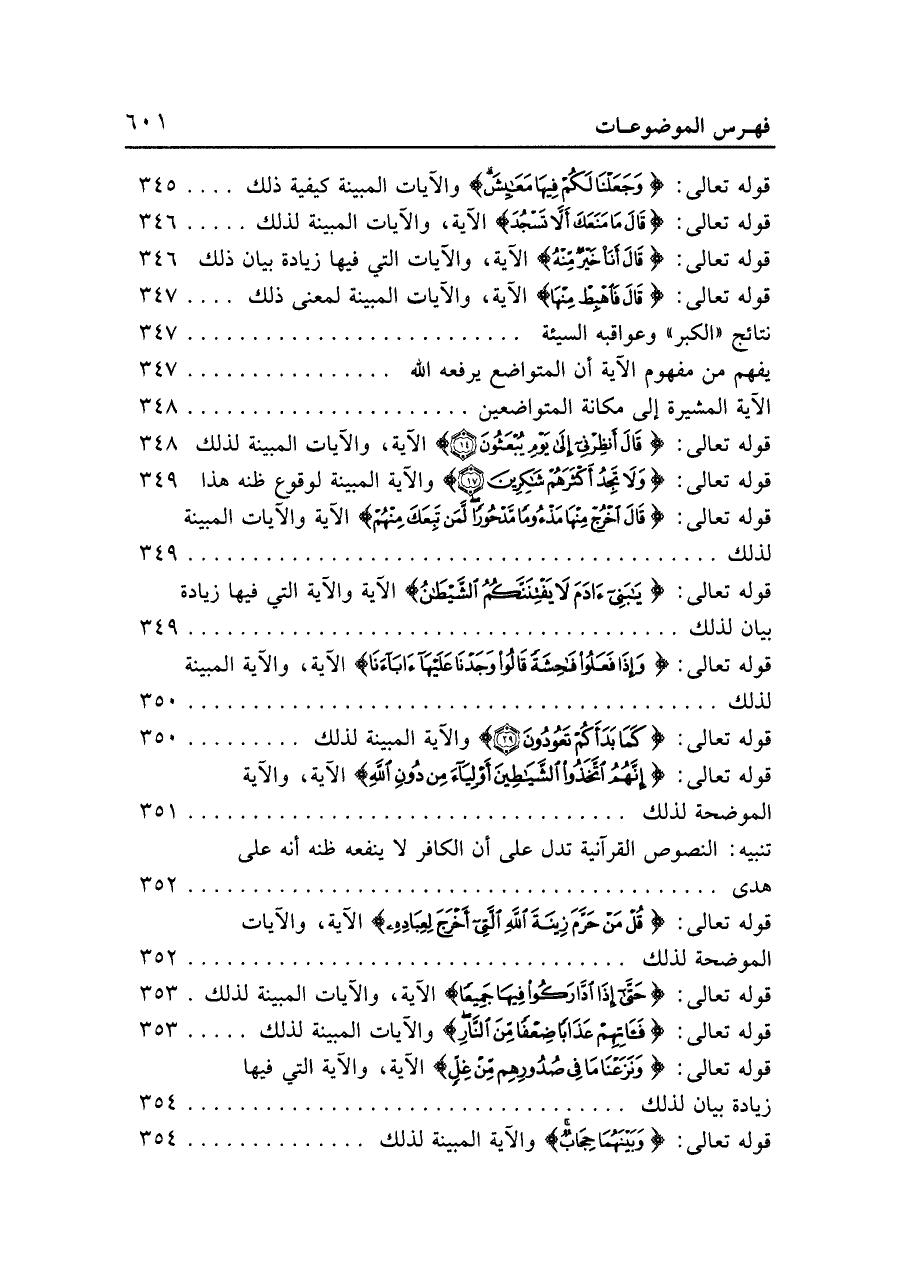 فهـرس الموضوعـات ٦٠١
قوله تعالى: ﴿ وَجَعَلْنَا لَكُمْ فِيهَا مَعَٰيِشَ ۗ﴾ والآيات المبينة كيفية ذلك .... ٣٤٥
قوله تعالى: ﴿ قَالَ مَا مَنَعَكَ أَلَّا تَسْجُدَ﴾ الآية، والآيات المبينة لذلك ..... ٣٤٦
قوله تعالى: ﴿ قَالَ أَنَا۠ خَيْرٌ مِّنْهُ﴾ الآية، والآيات التي فيها زيادة بيان ذلك ٣٤٦
قوله تعالى: ﴿ قَالَ فَٱهْبِطْ مِنْهَا﴾ الآية، والآيات المبينة لمعنى ذلك .... ٣٤٧
نتائج «الكبر» وعواقبه السيئة .......................... ٣٤٧
يفهم من مفهوم الآية أن المتواضع يرفعه الله ................ ٣٤٧
الآية المشيرة إلى مكانة المتواضعين ...................... ٣٤٨
قوله تعالى: ﴿ قَالَ أَنظِرْنِىٓ إِلَىٰ يَوْمِ يُبْعَثُونَ ﴿١٤﴾﴾ الآية، والآيات المبينة لذلك ٣٤٨
قوله تعالى: ﴿ وَلَا تَجِدُ أَكْثَرَهُمْ شَٰكِرِينَ ﴿١٧﴾﴾ والآية المبينة لوقوع ظنه هذا ٣٤٩
قوله تعالى: ﴿ قَالَ ٱخْرُجْ مِنْهَا مَذْءُومًا مَّدْحُورًا ۖ لَّمَن تَبِعَكَ مِنْهُمْ﴾ الآية والآيات المبينة
لذلك ......................................... ٣٤٩
قوله تعالى: ﴿ يَٰبَنِىٓ ءَادَمَ لَا يَفْتِنَنَّكُمُ ٱلشَّيْطَٰنُ﴾ الآية والآية التي فيها زيادة
بيان لذلك ...................................... ٣٤٩
قوله تعالى: ﴿ وَإِذَا فَعَلُوا۟ فَٰحِشَةً قَالُوا۟ وَجَدْنَا عَلَيْهَآ ءَابَآءَنَا﴾ الآية، والآية المبينة
لذلك ......................................... ٣٥٠
قوله تعالى: ﴿ كَمَا بَدَأَكُمْ تَعُودُونَ ﴿٢٩﴾﴾ والآية المبينة لذلك ......... ٣٥٠
قوله تعالى: ﴿ إِنَّهُمُ ٱتَّخَذُوا۟ ٱلشَّيَٰطِينَ أَوْلِيَآءَ مِن دُونِ ٱللَّهِ﴾ الآية، والآية
الموضحة لذلك .................................. ٣٥١
تنبيه: النصوص القرآنية تدل على أن الكافر لا ينفعه ظنه أنه على
هدى ......................................... ٣٥٢
قوله تعالى: ﴿ قُلْ مَنْ حَرَّمَ زِينَةَ ٱللَّهِ ٱلَّتِىٓ أَخْرَجَ لِعِبَادِهِۦ﴾ الآية، والآيات
الموضحة لذلك .................................. ٣٥٢
قوله تعالى: ﴿ حَتَّىٰٓ إِذَا ٱدَّارَكُوا۟ فِيهَا جَمِيعًا﴾ الآية، والآيات المبينة لذلك . ٣٥٣
قوله تعالى: ﴿ فَـَٔاتِهِمْ عَذَابًا ضِعْفًا مِّنَ ٱلنَّارِ ۖ﴾ والآيات المبينة لذلك ..... ٣٥٣
قوله تعالى: ﴿ وَنَزَعْنَا مَا فِى صُدُورِهِم مِّنْ غِلٍّ﴾ الآية، والآية التي فيها
زيادة بيان لذلك .................................. ٣٥٤
قوله تعالى: ﴿ وَبَيْنَهُمَا حِجَابٌ ۚ﴾ والآية المبينة لذلك .............. ٣٥٤